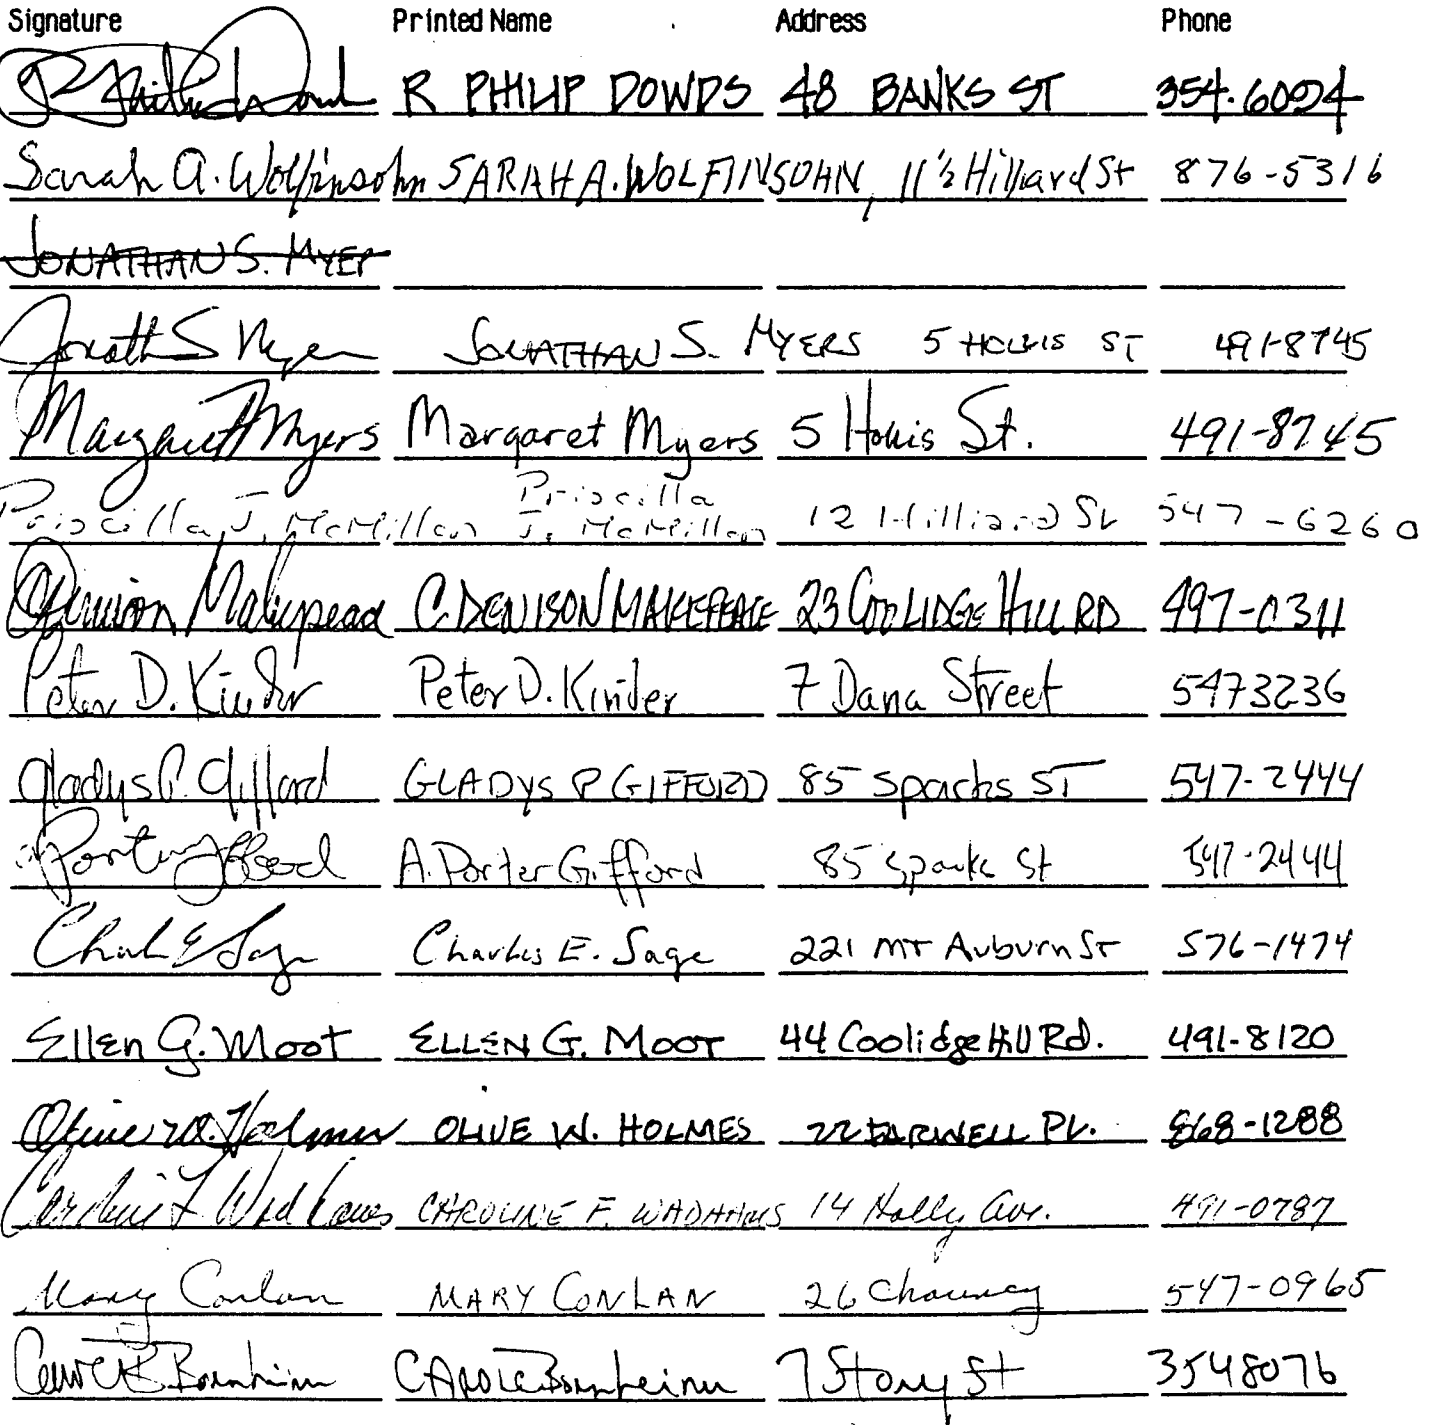 Signature Printed Name Address Phone
R Philip Dowds R PHILIP DOWDS 48 BANKS ST 354.6094
Sarah A. Wolfinsohn SARAH A. WOLFINSOHN, 11 1/2 Hilliard St 876-5316
JONATHAN S. MYER
Jonath S Myers JONATHAN S. MYERS 5 HOLLIS ST 491-8745
Margaret Myers Margaret Myers 5 Hollis St. 491-8745
Priscilla
Priscilla J. McMillan J. McMillan 12 Hilliard St 547-6260
C Denison Makepeace C. DENISON MAKEPEACE 23 COOLIDGE HILL RD 497-0311
Peter D. Kinder Peter D. Kinder 7 Dana Street 5473236
Gladys P. Gifford GLADYS P GIFFORD 85 Sparks ST 547-2444
A Porter Gifford A. Porter Gifford 85 Sparks St 547-2444
Charles E Sage Charles E. Sage 221 MT Auburn St 576-1474
Ellen G. Moot ELLEN G. MOOT 44 Coolidge Hill Rd. 491-8120
Olive W. Holmes OLIVE W. HOLMES 22 FARWELL PL. 868-1288
Caroline F Wadhams CAROLINE F. WADHAMS 14 Holly Ave. 491-0787
Mary Conlan MARY CONLAN 26 Chauncy 547-0965
Bornheim CAROLE Bornheim 7 Story St 3548076